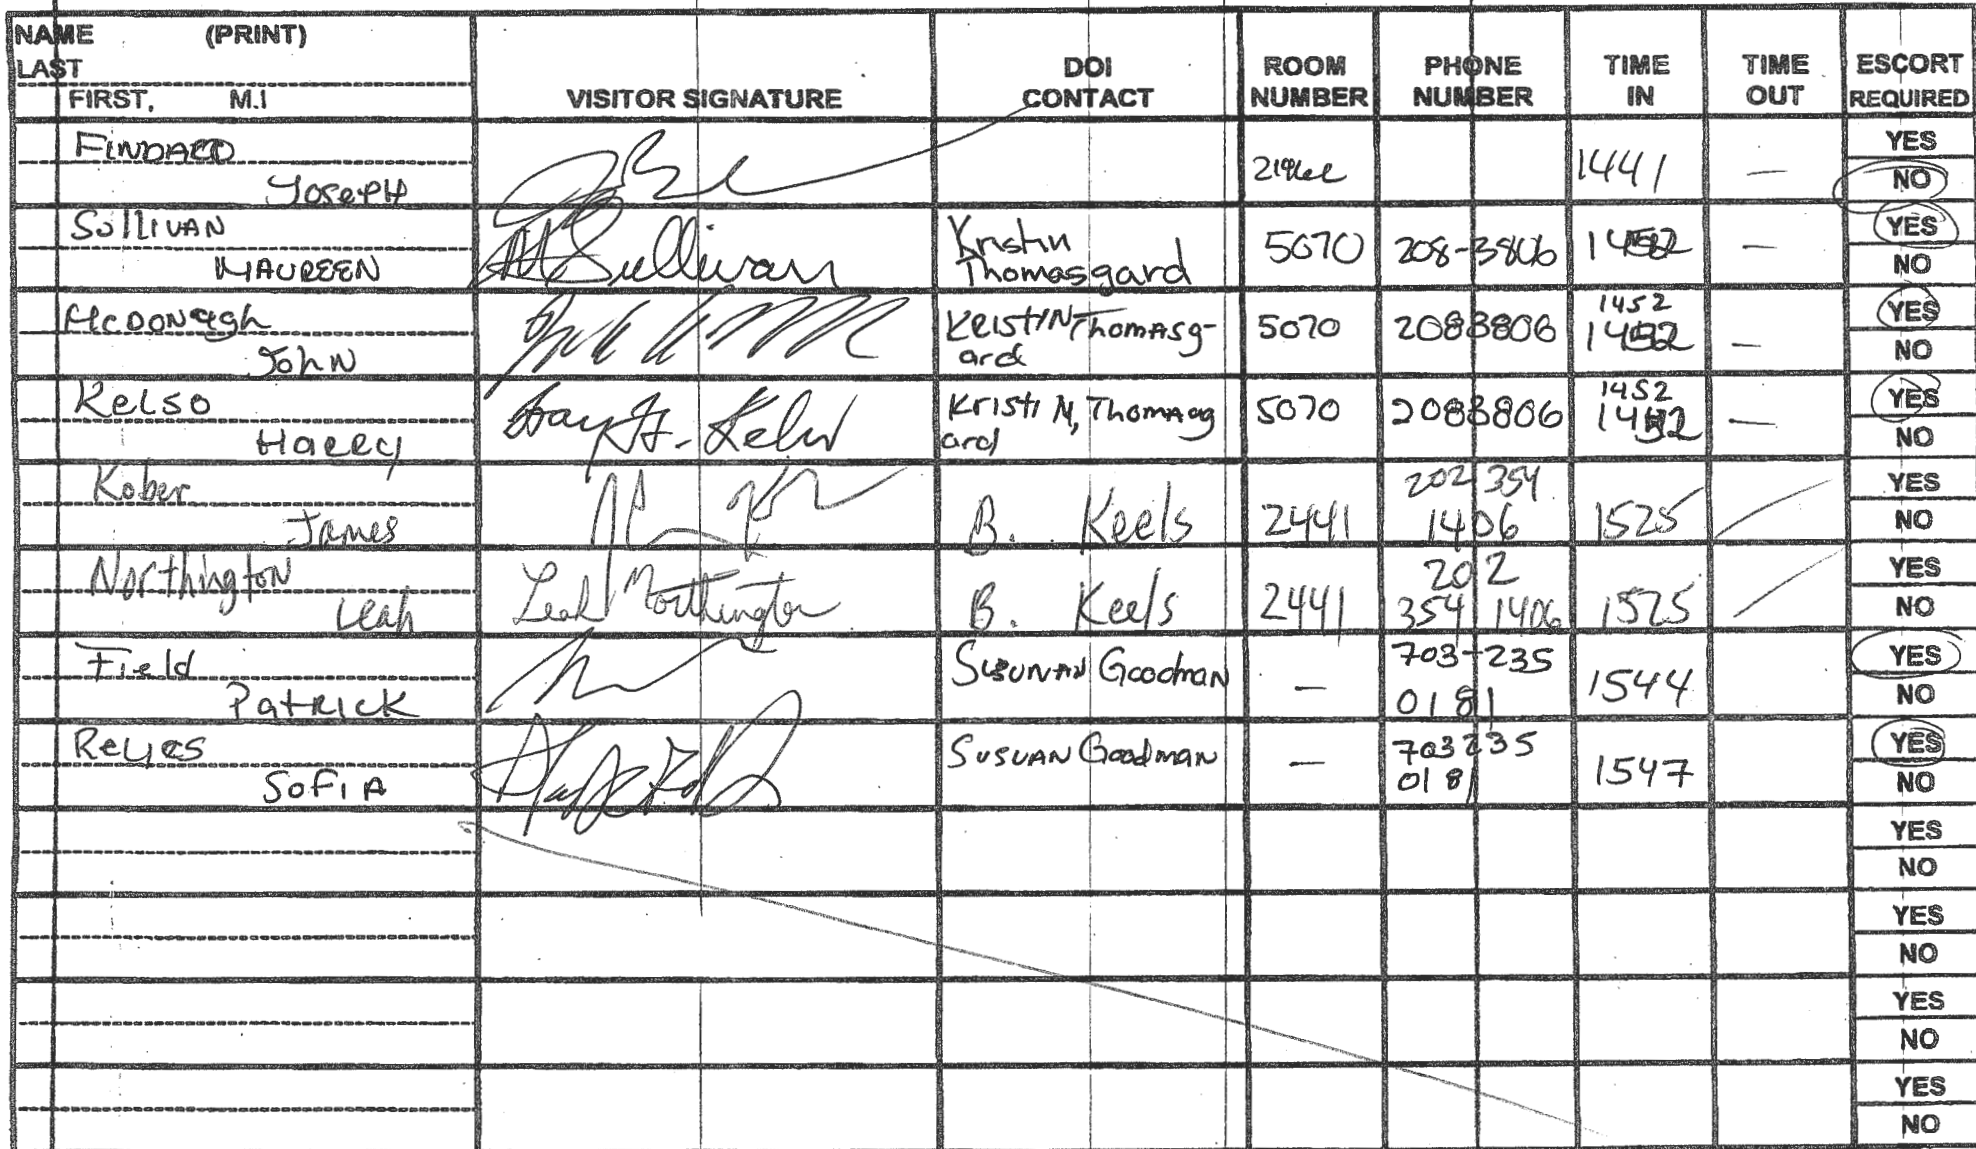 NAME (PRINT)
LAST
FIRST, M.I
VISITOR SIGNATURE
DOI
CONTACT
ROOM
NUMBER
PHONE
NUMBER
TIME
IN
TIME
OUT
ESCORT
REQUIRED
Joseph
1441 —
YES
NO
Sullivan
MAUREEN
M Sullivan
Kristin
Thomasgard
5070 208-3806 1452 —
YES
NO
McDonagh
John
KristiN Thomasg-
ard
5070 2083806
1452
1452 —
YES
NO
Kelso
Harry
Harry H. Kelso
KristiN, Thomasg
ard
5070 2083806
1452
1452 —
YES
NO
Kober
James
B. Keels
2441
202 354
1406
1525
YES
NO
Northington
Leah
Leah Northington
B. Keels
2441
202
354 1406
1525
YES
NO
Field
Patrick
Goodman
—
703-235
0181
1544
YES
NO
Reyes
Sofia
SUSUAN Goodman
—
703235
0181
1547
YES
NO
YES
NO
YES
NO
YES
NO
YES
NO